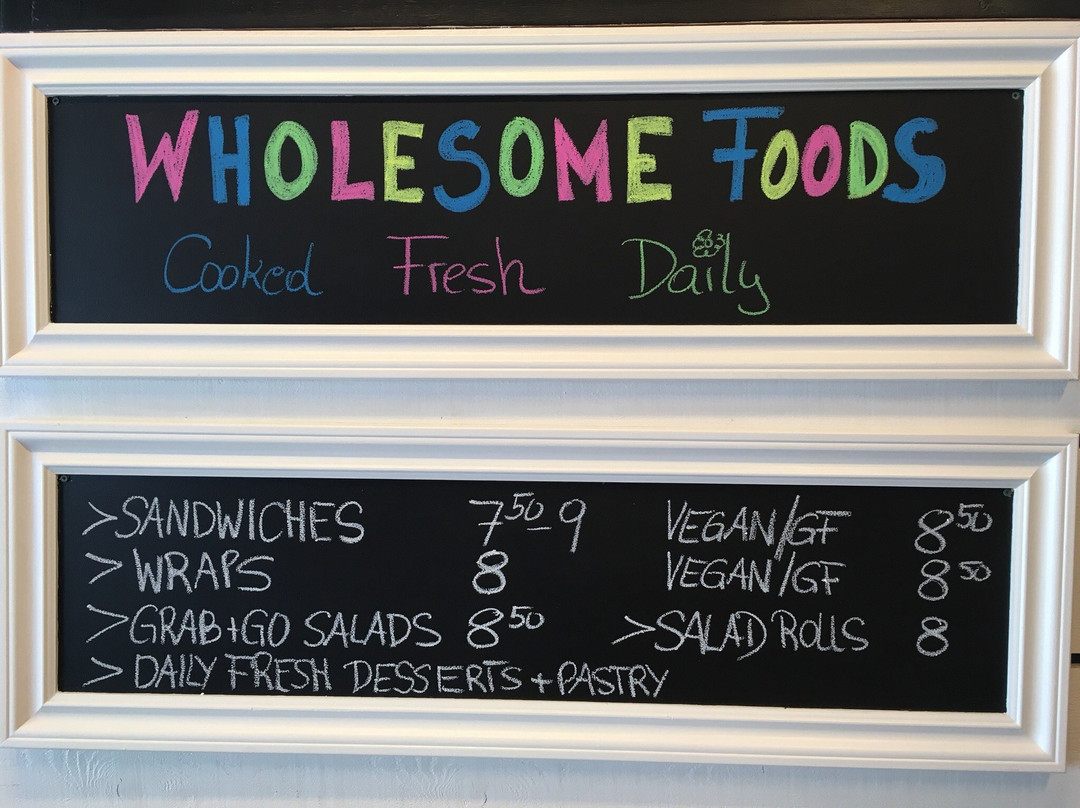 WHOLESOME FOODS
Cooked Fresh Daily
>SANDWICHES 7⁵⁰-9 VEGAN/GF 8⁵⁰
> WRAPS 8 VEGAN/GF 8⁵⁰
>GRAB+GO SALADS 8⁵⁰ >SALAD ROLLS 8
> DAILY FRESH DESSERTS + PASTRY